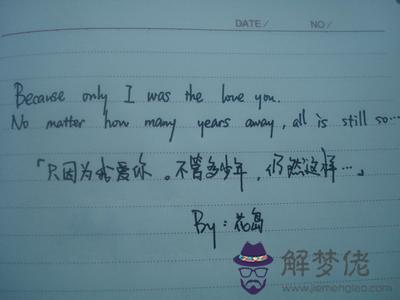 DATE/ NO/
Because only I was the love you.
No matter how many years away, all is still so…
「只因为我爱你。不管多少年，仍然这样…」
By：花岛
解梦佬
www.jiemenglao.com